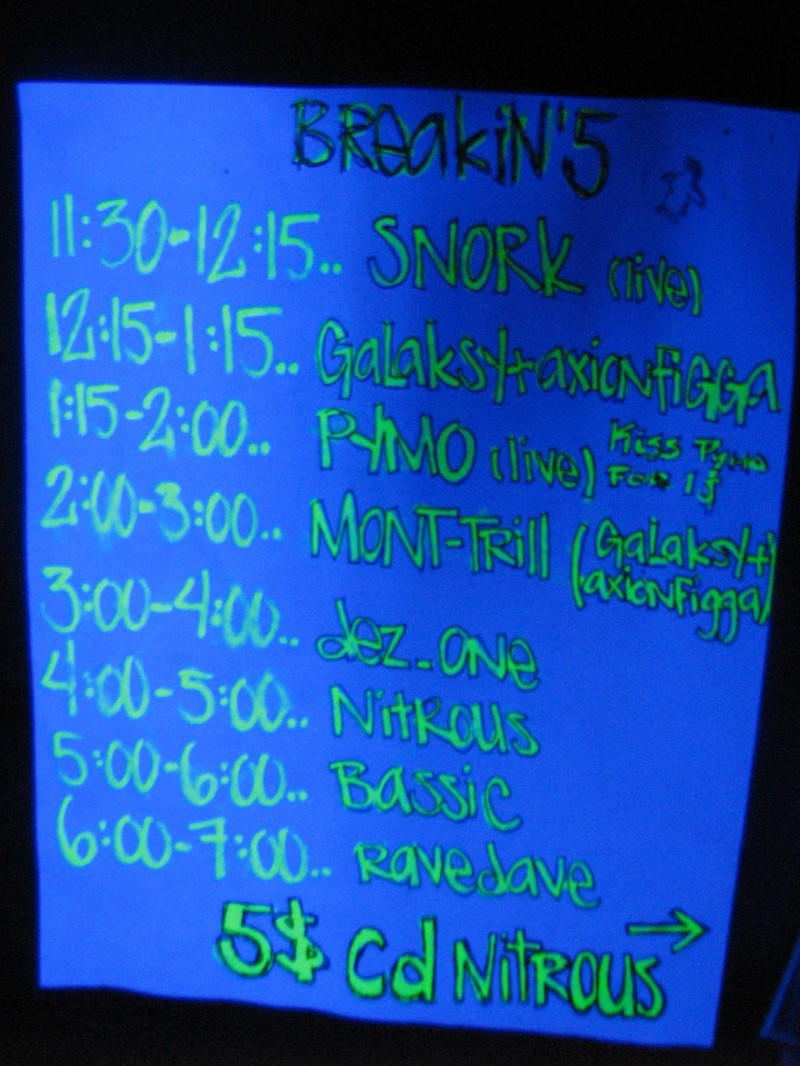 BReakiN'5
11:30-12:15.. SNORK (live)
12:15-1:15.. GaLaksy+axionfiGGa
1:15-2:00.. PYMO (live) Kiss Pymo For 1$
2:00-3:00.. MONT-TRill (GaLaksy+axionfigga)
3:00-4:00.. dez_one
4:00-5:00.. NitRous
5:00-6:00.. Bassic
6:00-7:00.. Ravedave
5$ Cd NitRous →